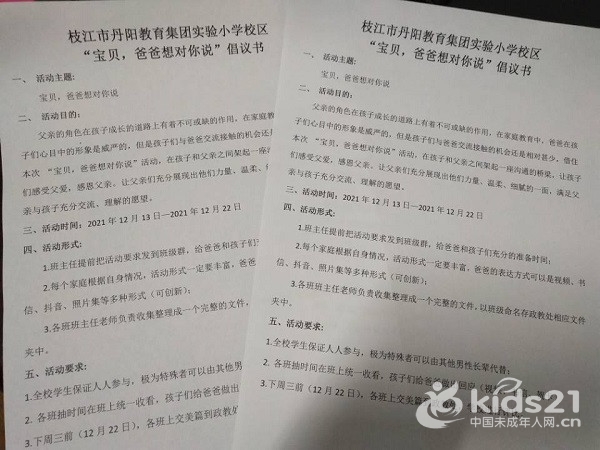 枝江市丹阳教育集团实验小学校区
“宝贝，爸爸想对你说”倡议书
一、 活动主题:
宝贝，爸爸想对你说
二、 活动目的:
父亲的角色在孩子成长的道路上有着不可或缺的作用，在家庭教
子们心目中的形象是威严的，但是孩子们与爸爸交流接触的机会还是
本次 “宝贝，爸爸想对你说”活动，在孩子和父亲之间架起一座沟
们感受父爱，感恩父亲、让父亲们充分展现出他们力量、温柔、细
亲与孩子充分交流、理解的愿望。
三、活动时间：2021 年 12 月 13 日—2021 年 12 月 22 日
四、活动形式:
1.班主任提前把活动要求发到班级群，给爸爸和孩子们充
2.每个家庭根据自身情况，活动形式一定要丰富，爸爸
信、抖音、照片集等多种形式（可创新）；
3.各班班主任老师负责收集整理成一个完整的文件，
夹中。
五、活动要求:
1.全校学生保证人人参与，极为特殊者可以由其他男
2. 各班抽时间在班上统一收看，孩子们给爸爸做出
3.下周三前（12 月 22 日），各班上交美篇到政教处
枝江市丹阳教育集团实验小学校区
“宝贝，爸爸想对你说”倡议书
一、 活动主题:
宝贝，爸爸想对你说
二、 活动目的:
父亲的角色在孩子成长的道路上有着不可或缺的作用，在家庭教育中，爸爸在孩
子们心目中的形象是威严的，但是孩子们与爸爸交流接触的机会还是相对甚少，借住
本次 “宝贝，爸爸想对你说”活动，在孩子和父亲之间架起一座沟通的桥梁，让孩子
们感受父爱，感恩父亲、让父亲们充分展现出他们力量、温柔、细腻的一面，满足父
亲与孩子充分交流、理解的愿望。
三、活动时间：2021 年 12 月 13 日—2021 年 12 月 22 日
四、活动形式:
1.班主任提前把活动要求发到班级群，给爸爸和孩子们充分的准备时间；
2.每个家庭根据自身情况，活动形式一定要丰富，爸爸的表达方式可以是视频、书
信、抖音、照片集等多种形式（可创新）；
3.各班班主任老师负责收集整理成一个完整的文件，以班级命名存政教处相应文件
夹中。
五、活动要求:
1.全校学生保证人人参与，极为特殊者可以由其他男性长辈代替；
2. 各班抽时间在班上统一收看，孩子们给爸爸做出回应
3.下周三前（12 月 22 日），各班上交美篇到政教处
kids21
中国未成年人网.cn